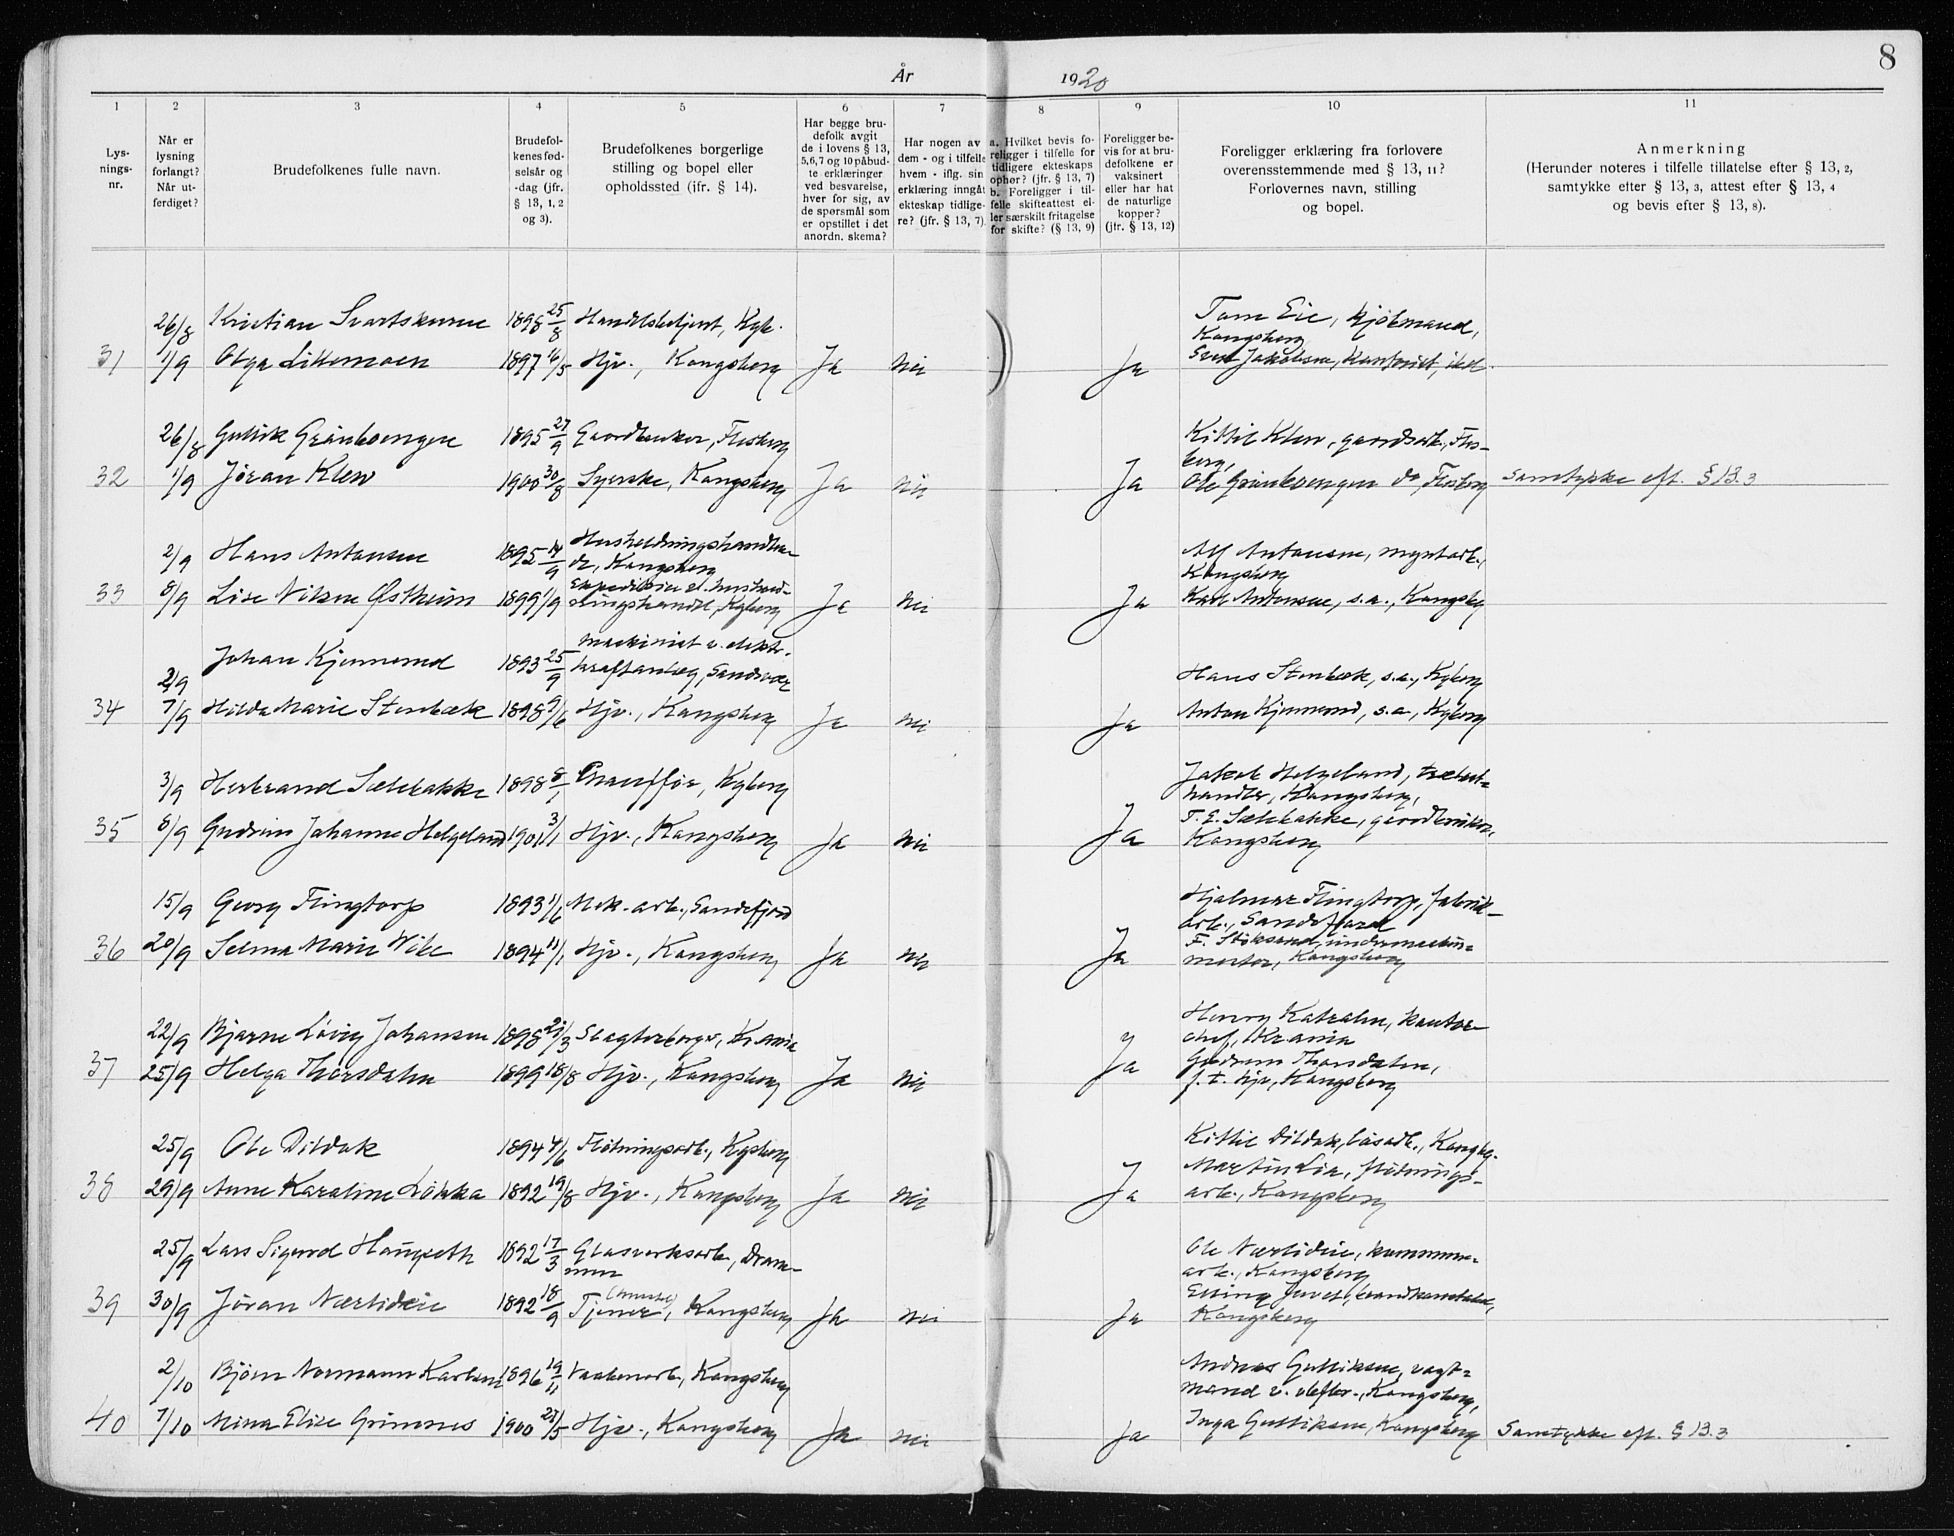 8
År 1920
1 2 3 4 5 6 7 8 9 10 11
Lys-
nings-
nr.
Når er
lysning
forlangt?
Når ut-
ferdiget?
Brudefolkenes fulle navn.
Brudefol-
kenes fød-
selsår og
-dag (jfr.
§ 13, 1, 2
og 3).
Brudefolkenes borgerlige
stilling og bopel eller
opholdssted (jfr. § 14).
Har begge bru-
defolk avgit
de i lovens § 13,
5,6,7 og 10 påbud-
te erklæringer
ved besvarelse,
hver for sig, av
de spørsmål som
er opstillet i det
anordn. skema?
Har nogen av
dem - og i tilfelle
hvem - iflg. sin
erklæring inngåt
ekteskap tidlige-
re? (jfr. § 13, 7)
a. Hvilket bevis fo-
religger i tilfelle for
tidligere ekteskaps
ophør? (jfr. § 13, 7)
b. Foreligger i til-
felle skifteattest el-
ler særskilt fritagelse
for skifte? (§ 13, 9)
Foreligger be-
vis for at bru-
defolkene er
vaksinert
eller har hat
de naturlige
kopper?
(jfr. § 13, 12)
Foreligger erklæring fra forlovere
overensstemmende med § 13, 11?
Forlovernes navn, stilling
og bopel.
Anmerkning
(Herunder noteres i tilfelle tillatelse efter § 13, 2,
samtykke efter § 13, 3, attest efter § 13, 4
og bevis efter § 13, 8).
26/8 Kristian 1898 25/8 Handelsbetjent, Kgb. Tom Eie, kjøbmand,
Kongsberg
31 1/9 Olga Littemoen 1897 16/5 Hjv., Kongsberg Ja Nei Ja Jakobsen, kontorist, ibd.
26/8 Gullik Grönhvengen 1895 27/9 Gaardbruker, Flesberg Kittil Klev, gaardsarb., Fles-
berg,
32 1/9 Jöran Klev 1900 30/8 Syerske, Kongsberg Ja Nei Ja Ole Grönhvengen do, Flesberg Samtykke eft. § 13.3
2/9 Hans Antonsen 1895 14/9 Husholdningshandlen-
de, Kongsberg Alf Antonsen, myntarb.,
Kongsberg
33 8/9 Lise Nilsen Østheim 1899 1/9 Ekspeditrice v. hushold-
ningshandel, Kgberg Ja Nei Ja Karl Antonsen, s.a., Kongsbg
2/9 Johan Kjennerud 1893 25/9 Maskinist v. elektr.
kraftanlæg, Sandsvær Hans Stenbæk, s.a., Kgberg
34 7/9 Hilda Marie Stenbæk 1898 9/6 Hjv., Kongsberg Ja Nei Ja Anton Kjennerud, s.a., Kgberg
3/9 Herbrand Sælebakke 1898 8/1 Chauffør, Kgberg Jakob Helgeland, trælast-
handler, Kongsberg,
35 8/9 Gudrun Johanne Helgeland 1901 3/1 Hjv., Kongsberg Ja Nei Ja T. E. Sælebakke, gaardbruker,
Kongsberg
15/9 Georg Flingtorp 1893 1/6 Mek. arb., Sandefjord Hjalmar Flingtorp, fabrik-
arb., Sandefjord
36 20/9 Selma Marie Wibe 1894 11/1 Hjv., Kongsberg Ja Nei Ja F. Stöksund, undermaskin-
mester, Kongsberg
22/9 Bjarne Lövig Johansen 1898 21/3 Slagterborger, Kr.ania Henry Katralen, kontor-
chef, Kr.ania
37 25/9 Helga Thorsdalen 1899 18/8 Hjv., Kongsberg Ja Nei Ja Gudrun Thorsdalen,
f. t. hjv, Kongsberg
25/9 Ole Dildak 1894 4/6 Flötningsarb., Kgsberg Kittil Dildak, Kongbg.
38 29/9 Anne Karoline Lökka 1892 19/8 Hjv., Kongsberg Ja Nei Ja Martin Lia, flötnings-
arb., Kongsberg
25/9 Lars Sigurd Haugseth 1892 17/3 Glasverksarb., Dram-
men Ole Nærlideie, kommune-
arb., Kongsberg
39 30/9 Jöran Nærlideie 1892 18/9 Tjener, Kongsberg Ja Nei Ja Elling Juvet, brandkonstabel,
Kongsberg
2/10 Björn Normann Karlsen 1896 19/11 Vaabenarb., Kongsberg Andreas Gulliksen, vagt-
mand v. , Kongsberg,
40 7/10 Mina Elise Grimnes 1900 21/5 Hjv., Kongsberg Ja Nei Ja Inga Gulliksen, Kongsberg Samtykke eft. § 13.3